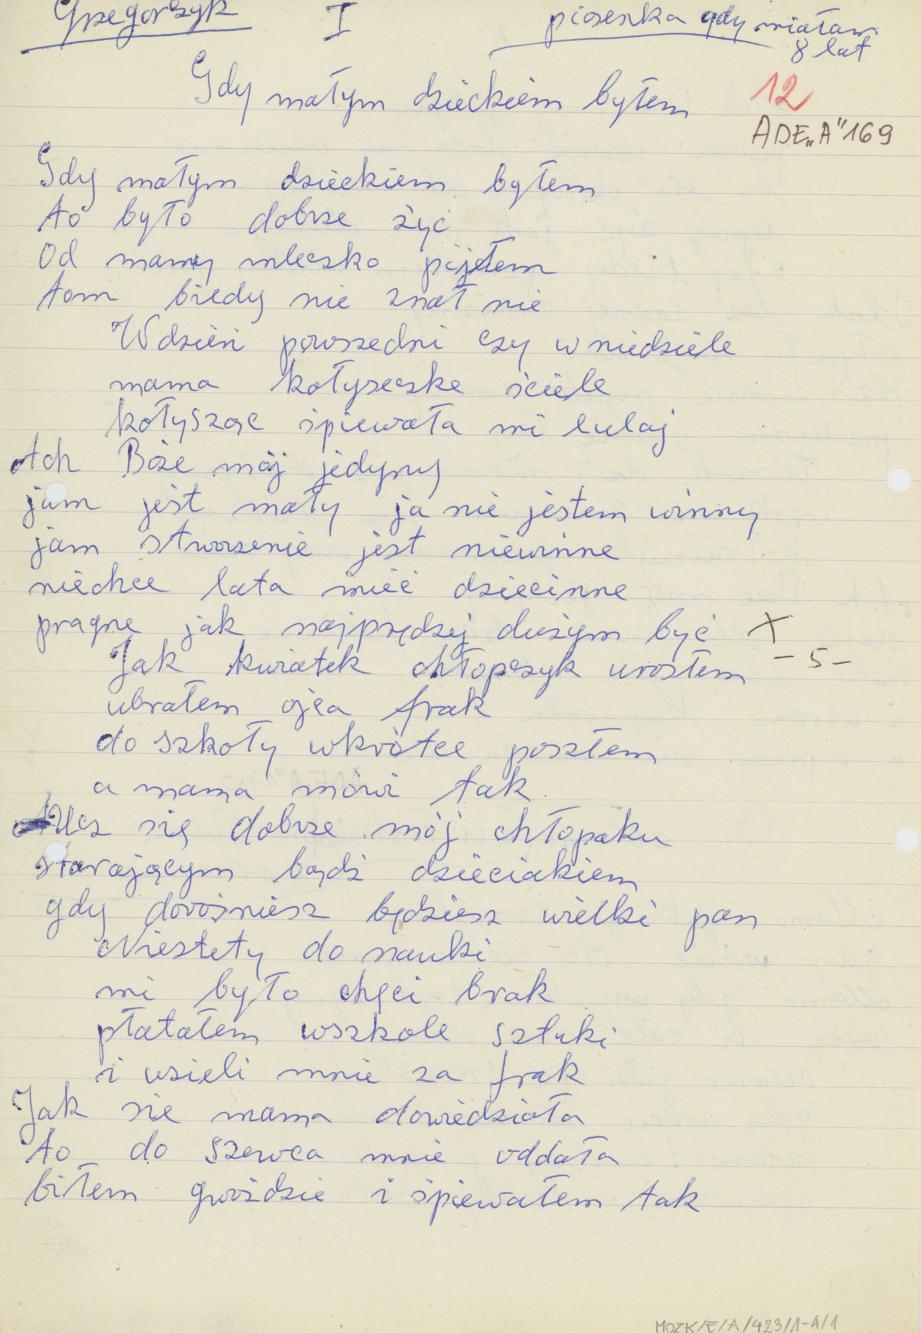 Grzegorzyk I piosenka gdy miałam
8 lat
Gdy małym dzieckiem byłem
12
ADE„A”169
Gdy małym dzieckiem byłem
to było dobrze żyć
Od mamy mleczko pijełem
tom biedy nie znał nie
W dzień powszedni czy w niedziele
mama kołyseczke ściele
kołysząc śpiewała mi lulaj
Ach Boże mój jedyny
jam jest mały ja nie jestem winny
jam stworzenie jest niewinne
niechce lata mieć dziecinne
pragne jak najprędzej dużym być X
- 5 -
Jak kwiatek chłopczyk urosłem
ubrałem ojca frak
do szkoły wkrótce poszłem
a mama mówi tak
Ucz się dobrze mój chłopaku
starającym bądź dzieciakiem
gdy dorośniesz będziesz wielki pan
Niestety do nauki
mi było chęci brak
płatałem wszkole sztuki
i wzieli mnie za frak
Jak sie mama dowiedziała
to do szewca mnie oddała
biłem gwoździe i śpiewałem tak
MOZK/E/A/423/1-A/1